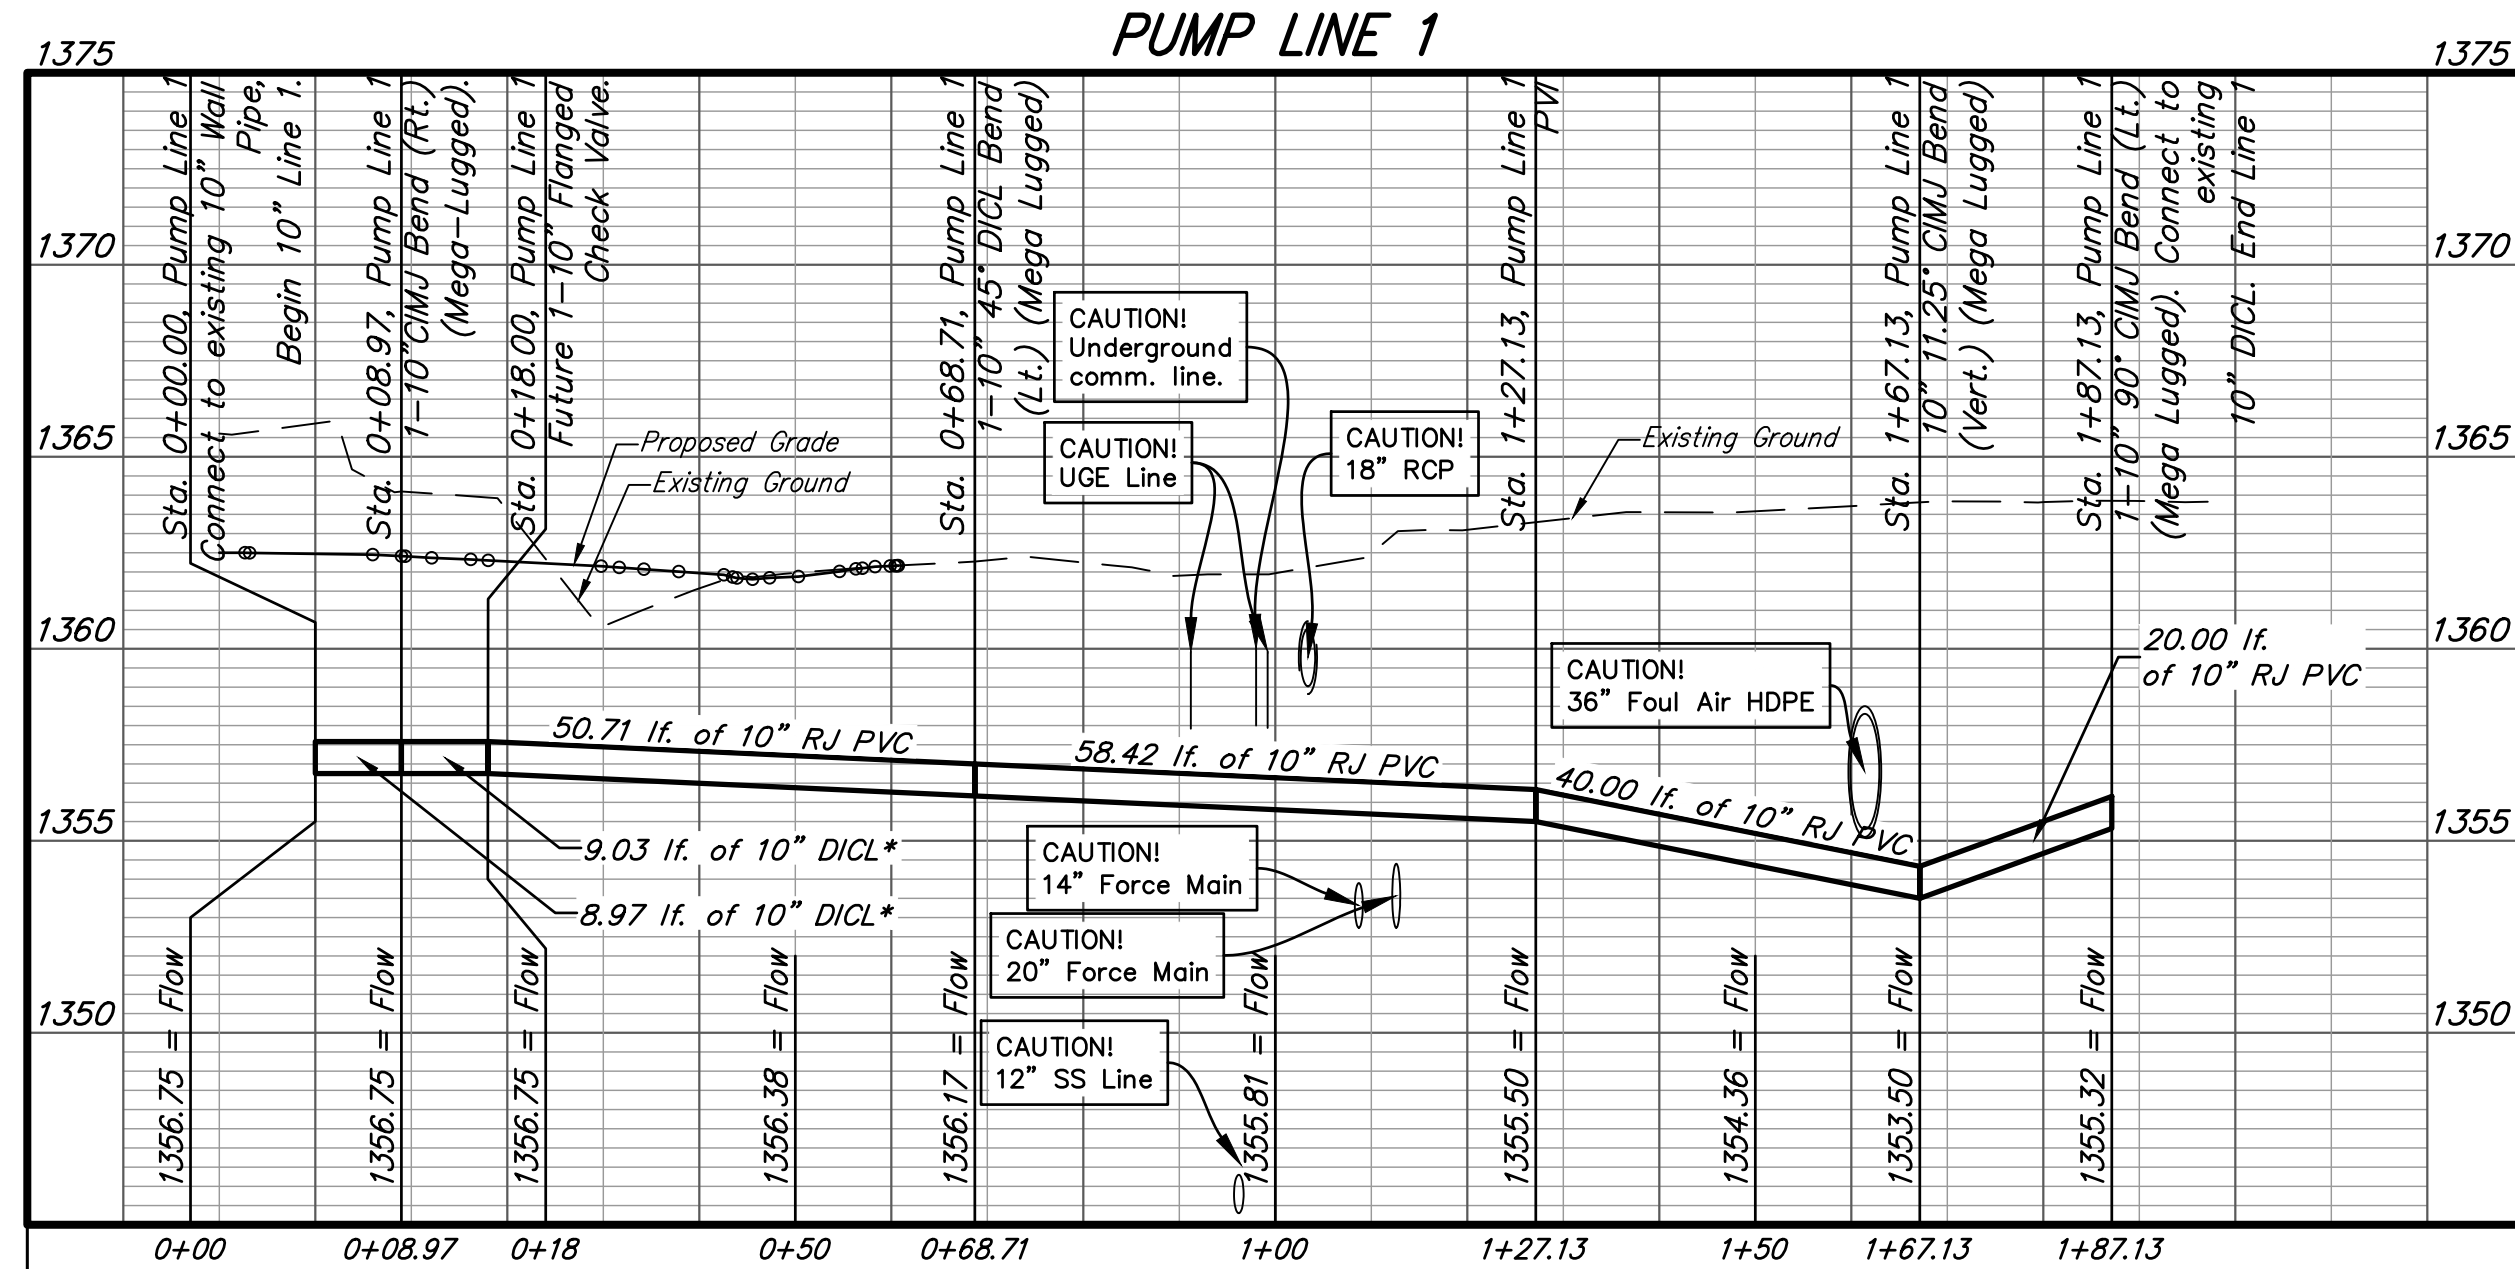 PUMP LINE 1
1375
1375
Sta. 0+00.00, Pump Line 1
Connect to existing 10" Wall
Pipe,
Begin 10" Line 1.
Sta. 0+08.97, Pump Line 1
1-10"CIMJ Bend (Rt.)
(Mega-Lugged).
Sta. 0+18.00, Pump Line 1
Future 1-10" Flanged
Check Valve.
Sta. 0+68.71, Pump Line 1
1-10" 45° DICL Bend
(Lt.) (Mega Lugged)
Sta. 1+27.13, Pump Line 1
PVI
Sta. 1+67.13, Pump Line 1
10" 11.25° CIMJ Bend
(Vert.) (Mega Lugged)
Sta. 1+87.13, Pump Line 1
1-10" 90° CIMJ Bend (Lt.)
(Mega Lugged). Connect to
existing
10" DICL. End Line 1
1370
1370
CAUTION!
Underground
comm. line.
1365
1365
Proposed Grade
Existing Ground
CAUTION!
UGE Line
CAUTION!
18" RCP
Existing Ground
1360
1360
CAUTION!
36" Foul Air HDPE
20.00 lf.
of 10" RJ PVC
50.71 lf. of 10" RJ PVC
58.42 lf. of 10" RJ PVC
40.00 lf. of 10" RJ PVC
1355
1355
9.03 lf. of 10" DICL*
8.97 lf. of 10" DICL*
CAUTION!
14" Force Main
CAUTION!
20" Force Main
1350
1350
CAUTION!
12" SS Line
1356.75 = Flow
1356.75 = Flow
1356.75 = Flow
1356.38 = Flow
1356.17 = Flow
1355.81 = Flow
1355.50 = Flow
1354.36 = Flow
1353.50 = Flow
1355.32 = Flow
0+00
0+08.97
0+18
0+50
0+68.71
1+00
1+27.13
1+50
1+67.13
1+87.13